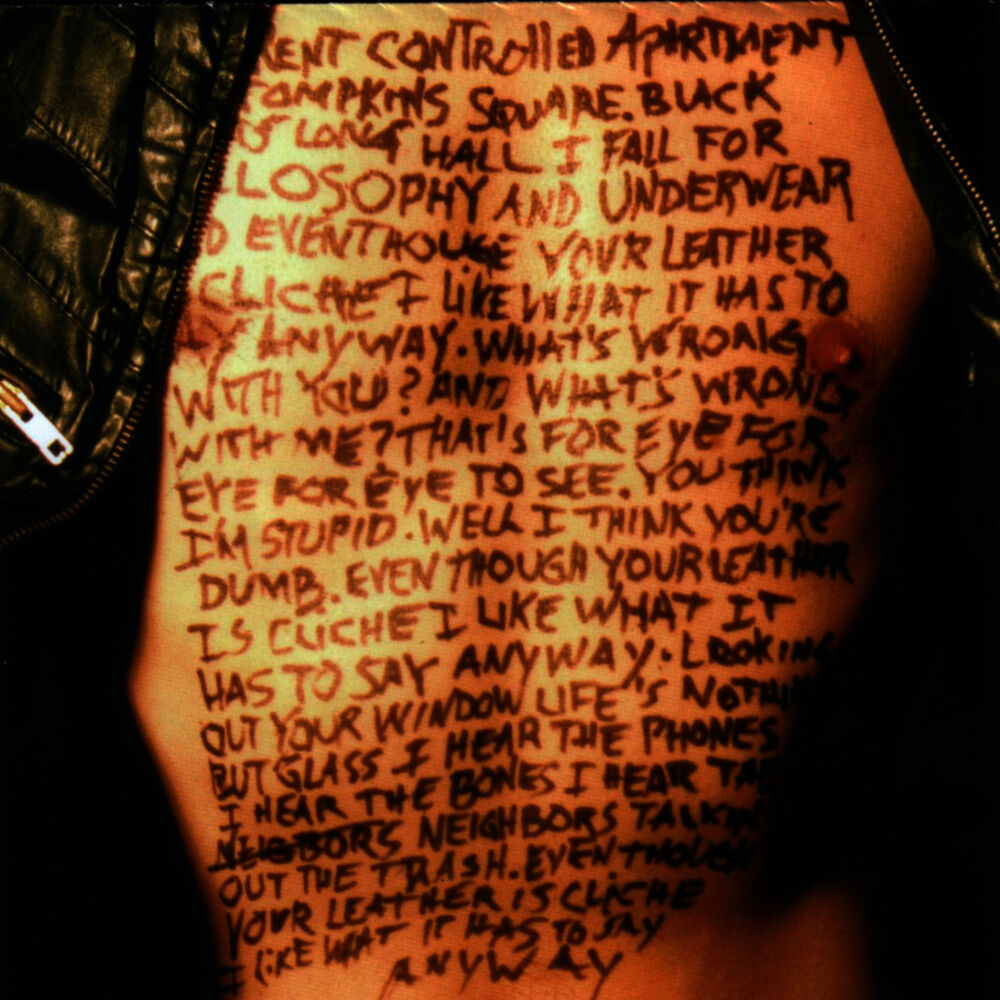 RENT CONTROllED APARTMENT
TOMPKINS SQUARE. BUCK
OF LONG HALL I FALL FOR
LOSOPHY AND UNDERWEAR
D EVENTHOUGE YOUR LEATHER
CLICHE I LIKE WHAT IT HAS TO
ANYWAY. WHAT'S WRONG
WITH YOU? AND WHAT'S WRONG
WITH ME? THAT'S FOR EYE FOR
EYE FOR EYE TO SEE. YOU THINK
I'M STUPID. WELL I THINK YOU'RE
DUMB. EVEN THOUGH YOUR LEATHER
IS CLICHE I LIKE WHAT IT
HAS TO SAY ANYWAY. LOOKING
OUT YOUR WINDOW LIFE'S NOTHIN
BUT GLASS I HEAR THE PHONES
I HEAR THE BONES I HEAR TA
NEIGHBORS TALKIN
OUT THE TRASH. EVEN THOUGH
YOUR LEATHER IS CLICHE
I LIKE WHAT IT HAS TO SAY
ANYWAY